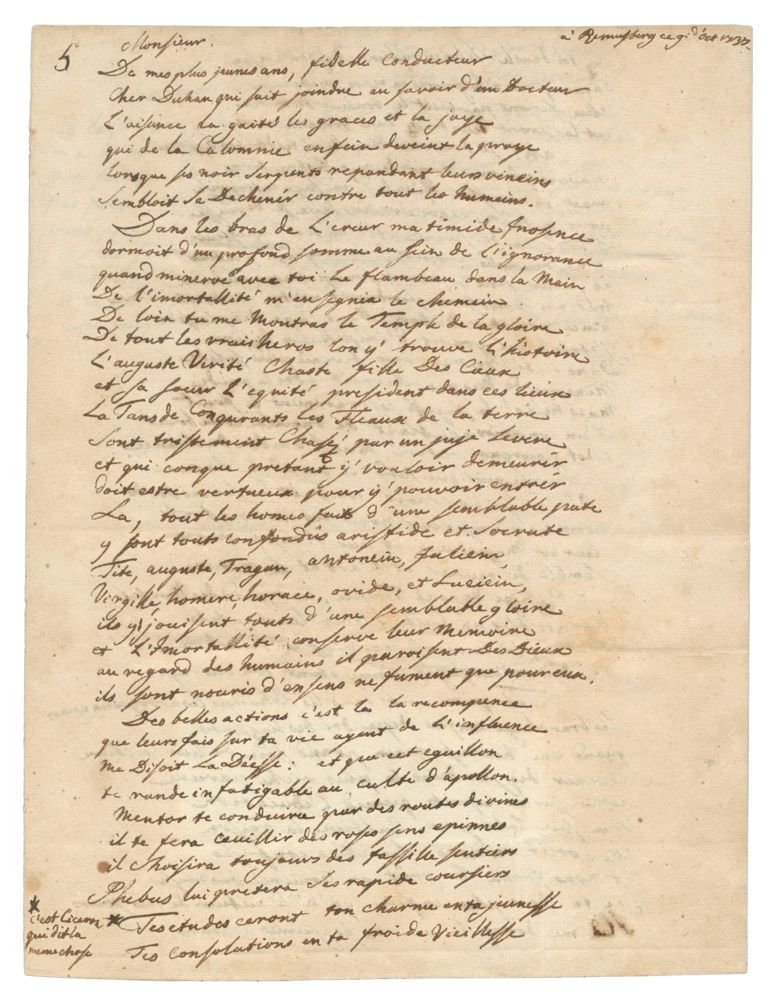 5
à Remusberg ce 9 d'Oct 1737
Monsieur.
De mes plus jeunes ans, fidelle conducteur
Cher Duhan qui sait joindre au savoir d'un Docteur
L'aisence la gaité les graces et la joye
qui de la Calomnie enfein deveint la proye
lorsque ses noir serpents repandant leurs veneins
sembloit se Dechenér contre tout les humeins.
Dans les bras de L'ereur ma timide Inosence
dormoit d'un profond somme au sein de l'ignorance
quand minerve avec toi le flambeau dans la Main
De l'imortallité m'ensegnia le chemein
De loin tu me moutras le Temple de la gloire
De tout les vrais heros lon y' trouve l'histoire
L'auguste Verité chaste fille Des Cieux
et sa soeur L'equité president dans ces lieux
La Tans de Conqurants les Fleaux de la terre
sont tristement chasé par un juje severe
et qui conque pretant y' vouloir demeurér
doit estre vertueux pour y' pouvoir entrér
La, tout les homes fait d'une semblable pate
y sont touts confondûs aristide et Socrate
Tite, auguste, Tragan, antonein, Julien,
Virgille, homere, horace, ovide, et Luciein,
ils y' jouisent touts d'une semblable gloire
et L'Imortallité conserve leur memoire
au regard des humains il paroisent Des Dieux
ils sont nouris d'ensens ne fument que pour eux.
Des belles actions c'est la la recompence
que leurs fais sur ta vie ayent de l'influence
me Disoit La Déesse: et que cet eguillon
te rande infatigable au culte d'apollon.
Mentor te conduira par des routes divines
il te fera ceuillir des roses sens epinnes
il choisira toujours des fassille sentiers
Phebus lui pretera ses rapide coursiers
* Tes etudes ceront ton charme en ta jeunesse
Tes consolations en ta froide Vieillesse
* c'est Ciceron
qui dit la
meme chose